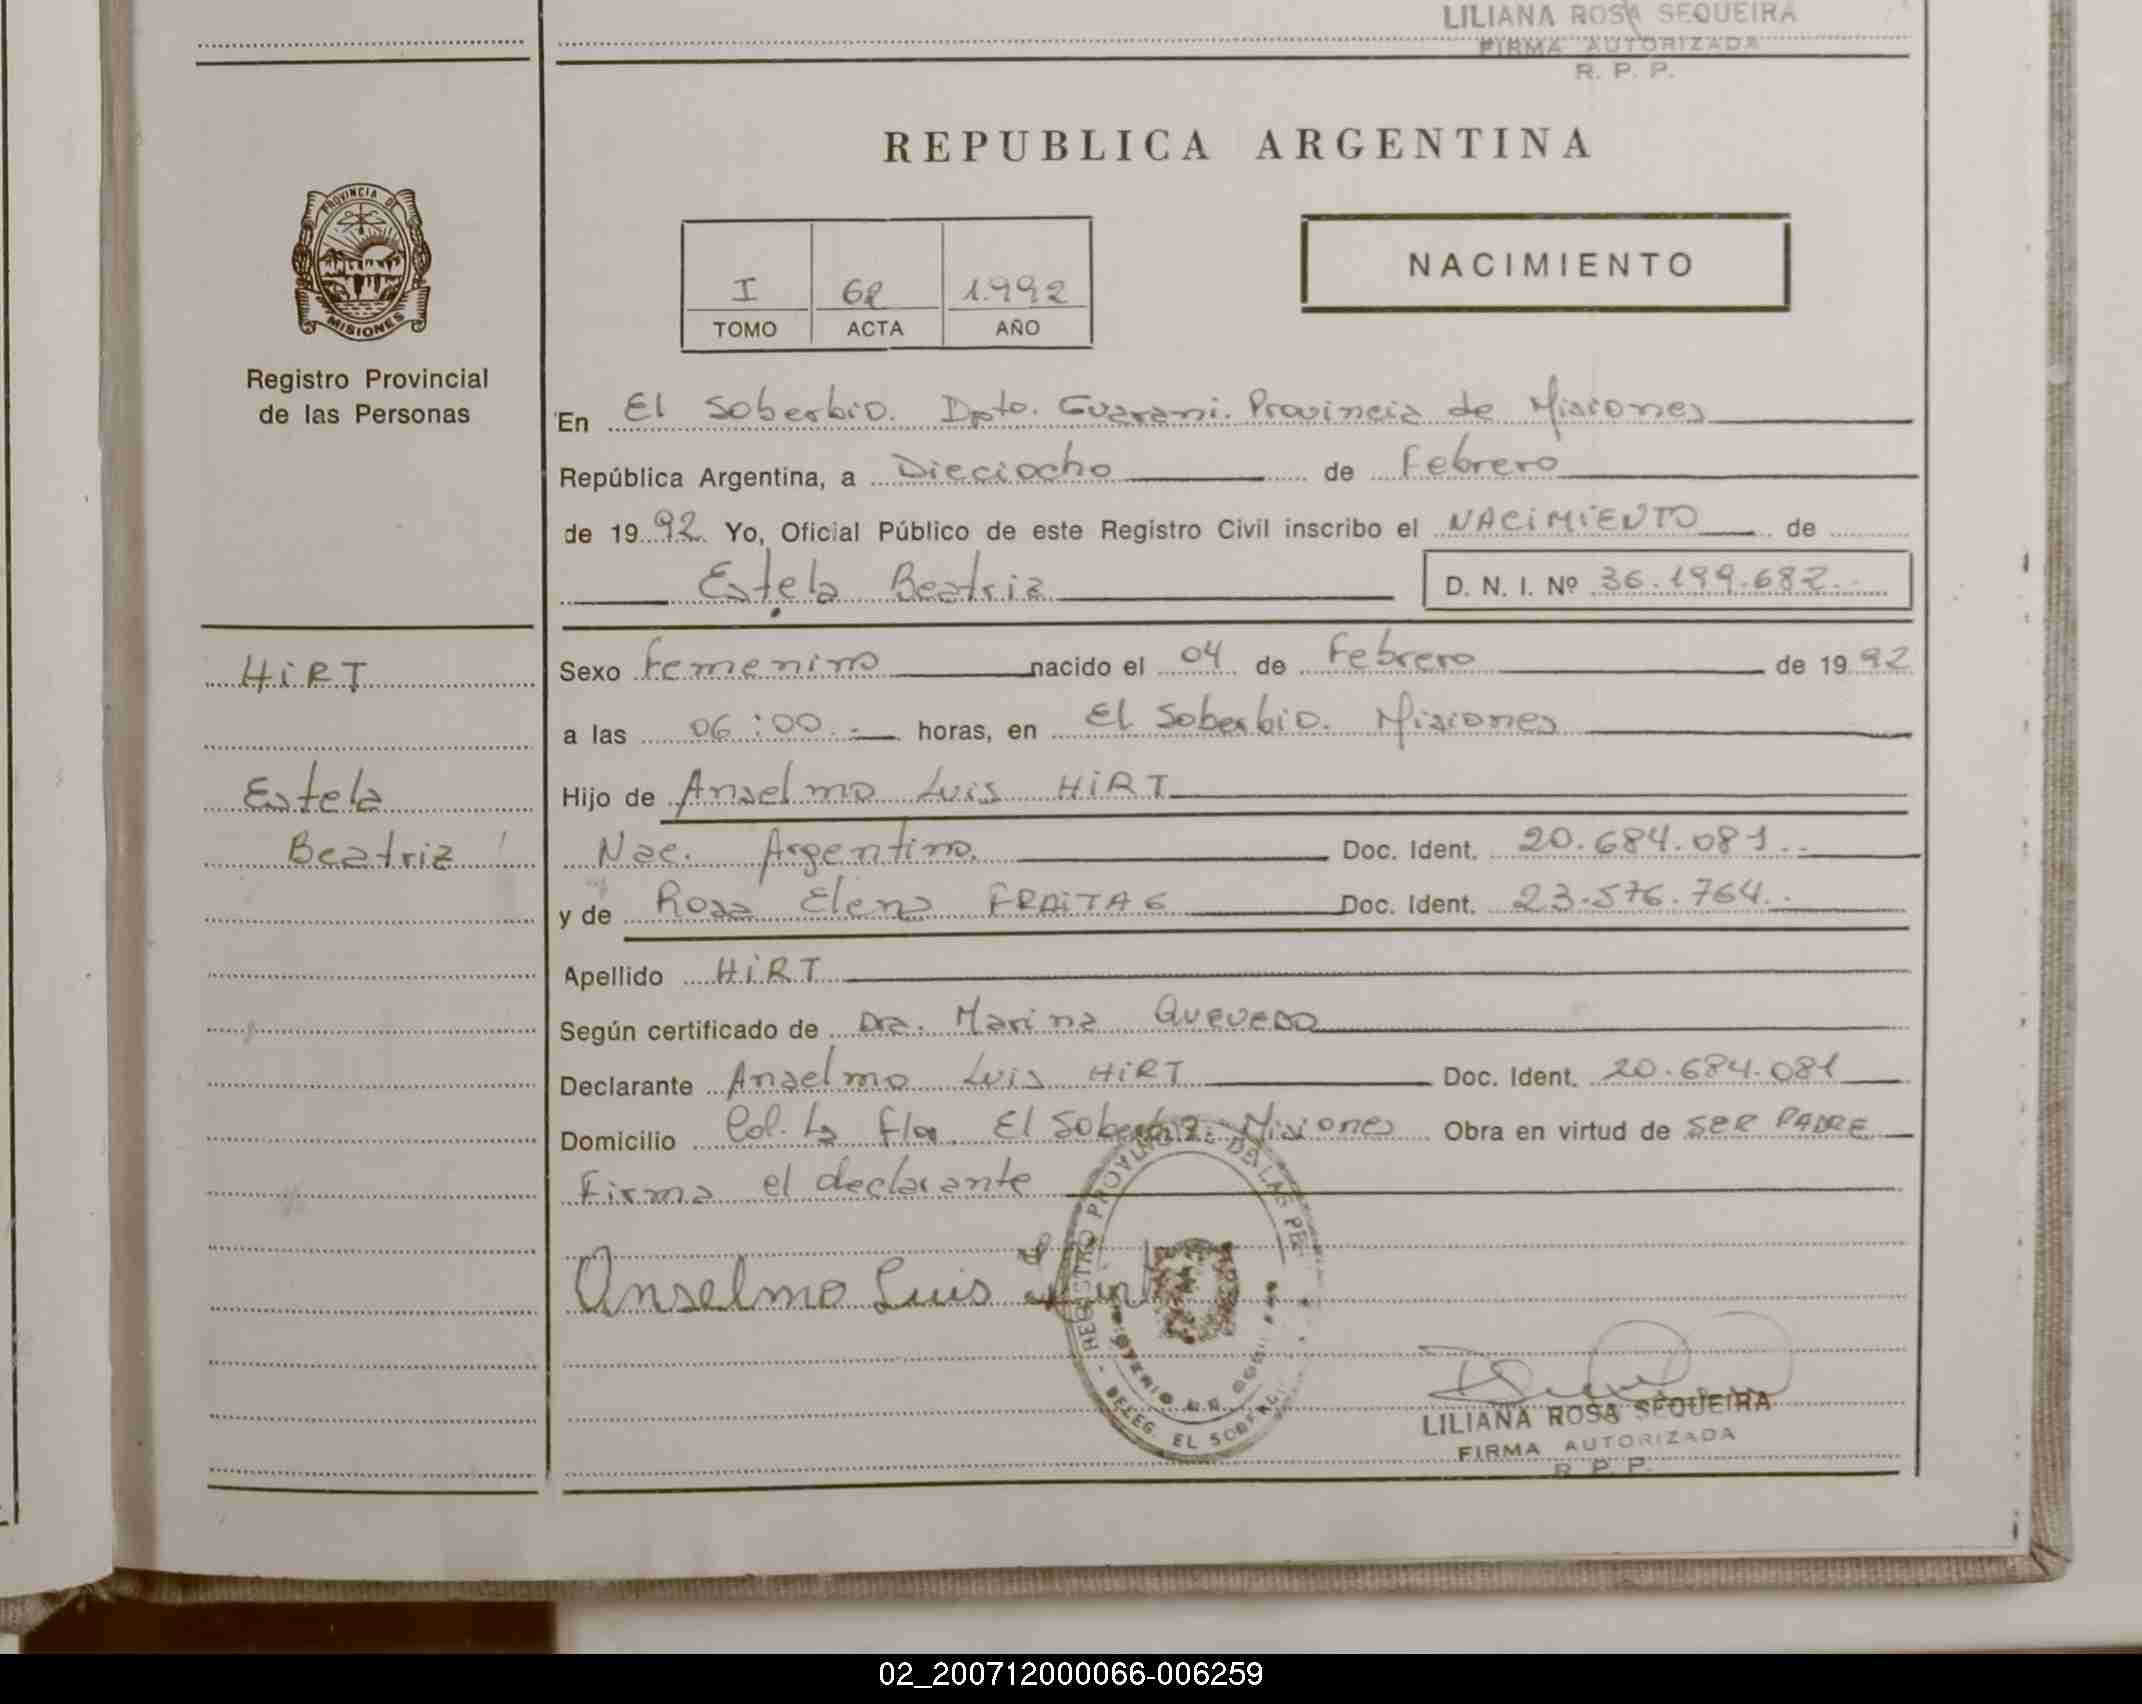 LILIANA ROSA SEQUEIRA
FIRMA AUTORIZADA
R. P. P.
PROVINCIA DE
MISIONES
Registro Provincial
de las Personas
HiRT
Estela
Beatriz
REPUBLICA ARGENTINA
I 62 1.992
TOMO ACTA AÑO
NACIMIENTO
En El Soberbio. Dpto. Guarani. Provincia de Misiones
República Argentina, a Dieciocho de Febrero
de 19 92 Yo, Oficial Público de este Registro Civil inscribo el NACiMiENTO de
Estela Beatriz D. N. I. Nº 36.199.682.
Sexo Femenino nacido el 04 de Febrero de 19 92
a las 06:00.- horas, en El Soberbio. Misiones
Hijo de Anselmo Luis HiRT
Nac. Argentino. Doc. Ident. 20.684.081.
y de Rosa Elena FRAiTAG Doc. Ident. 23.576.764.
Apellido HiRT
Según certificado de Dra. Marina QUEVEDO
Declarante Anselmo Luis HiRT Doc. Ident. 20.684.081
Domicilio Col. La Flor. El Soberbio. Misiones Obra en virtud de SER PADRE
Firma el declarante
Anselmo Luis Hirt
REGISTRO PROVINCIAL DE LAS PE
DELEG EL SOBERBIO
LILIANA ROSA SEQUEIRA
FIRMA AUTORIZADA
R. P. P.
02_200712000066-006259